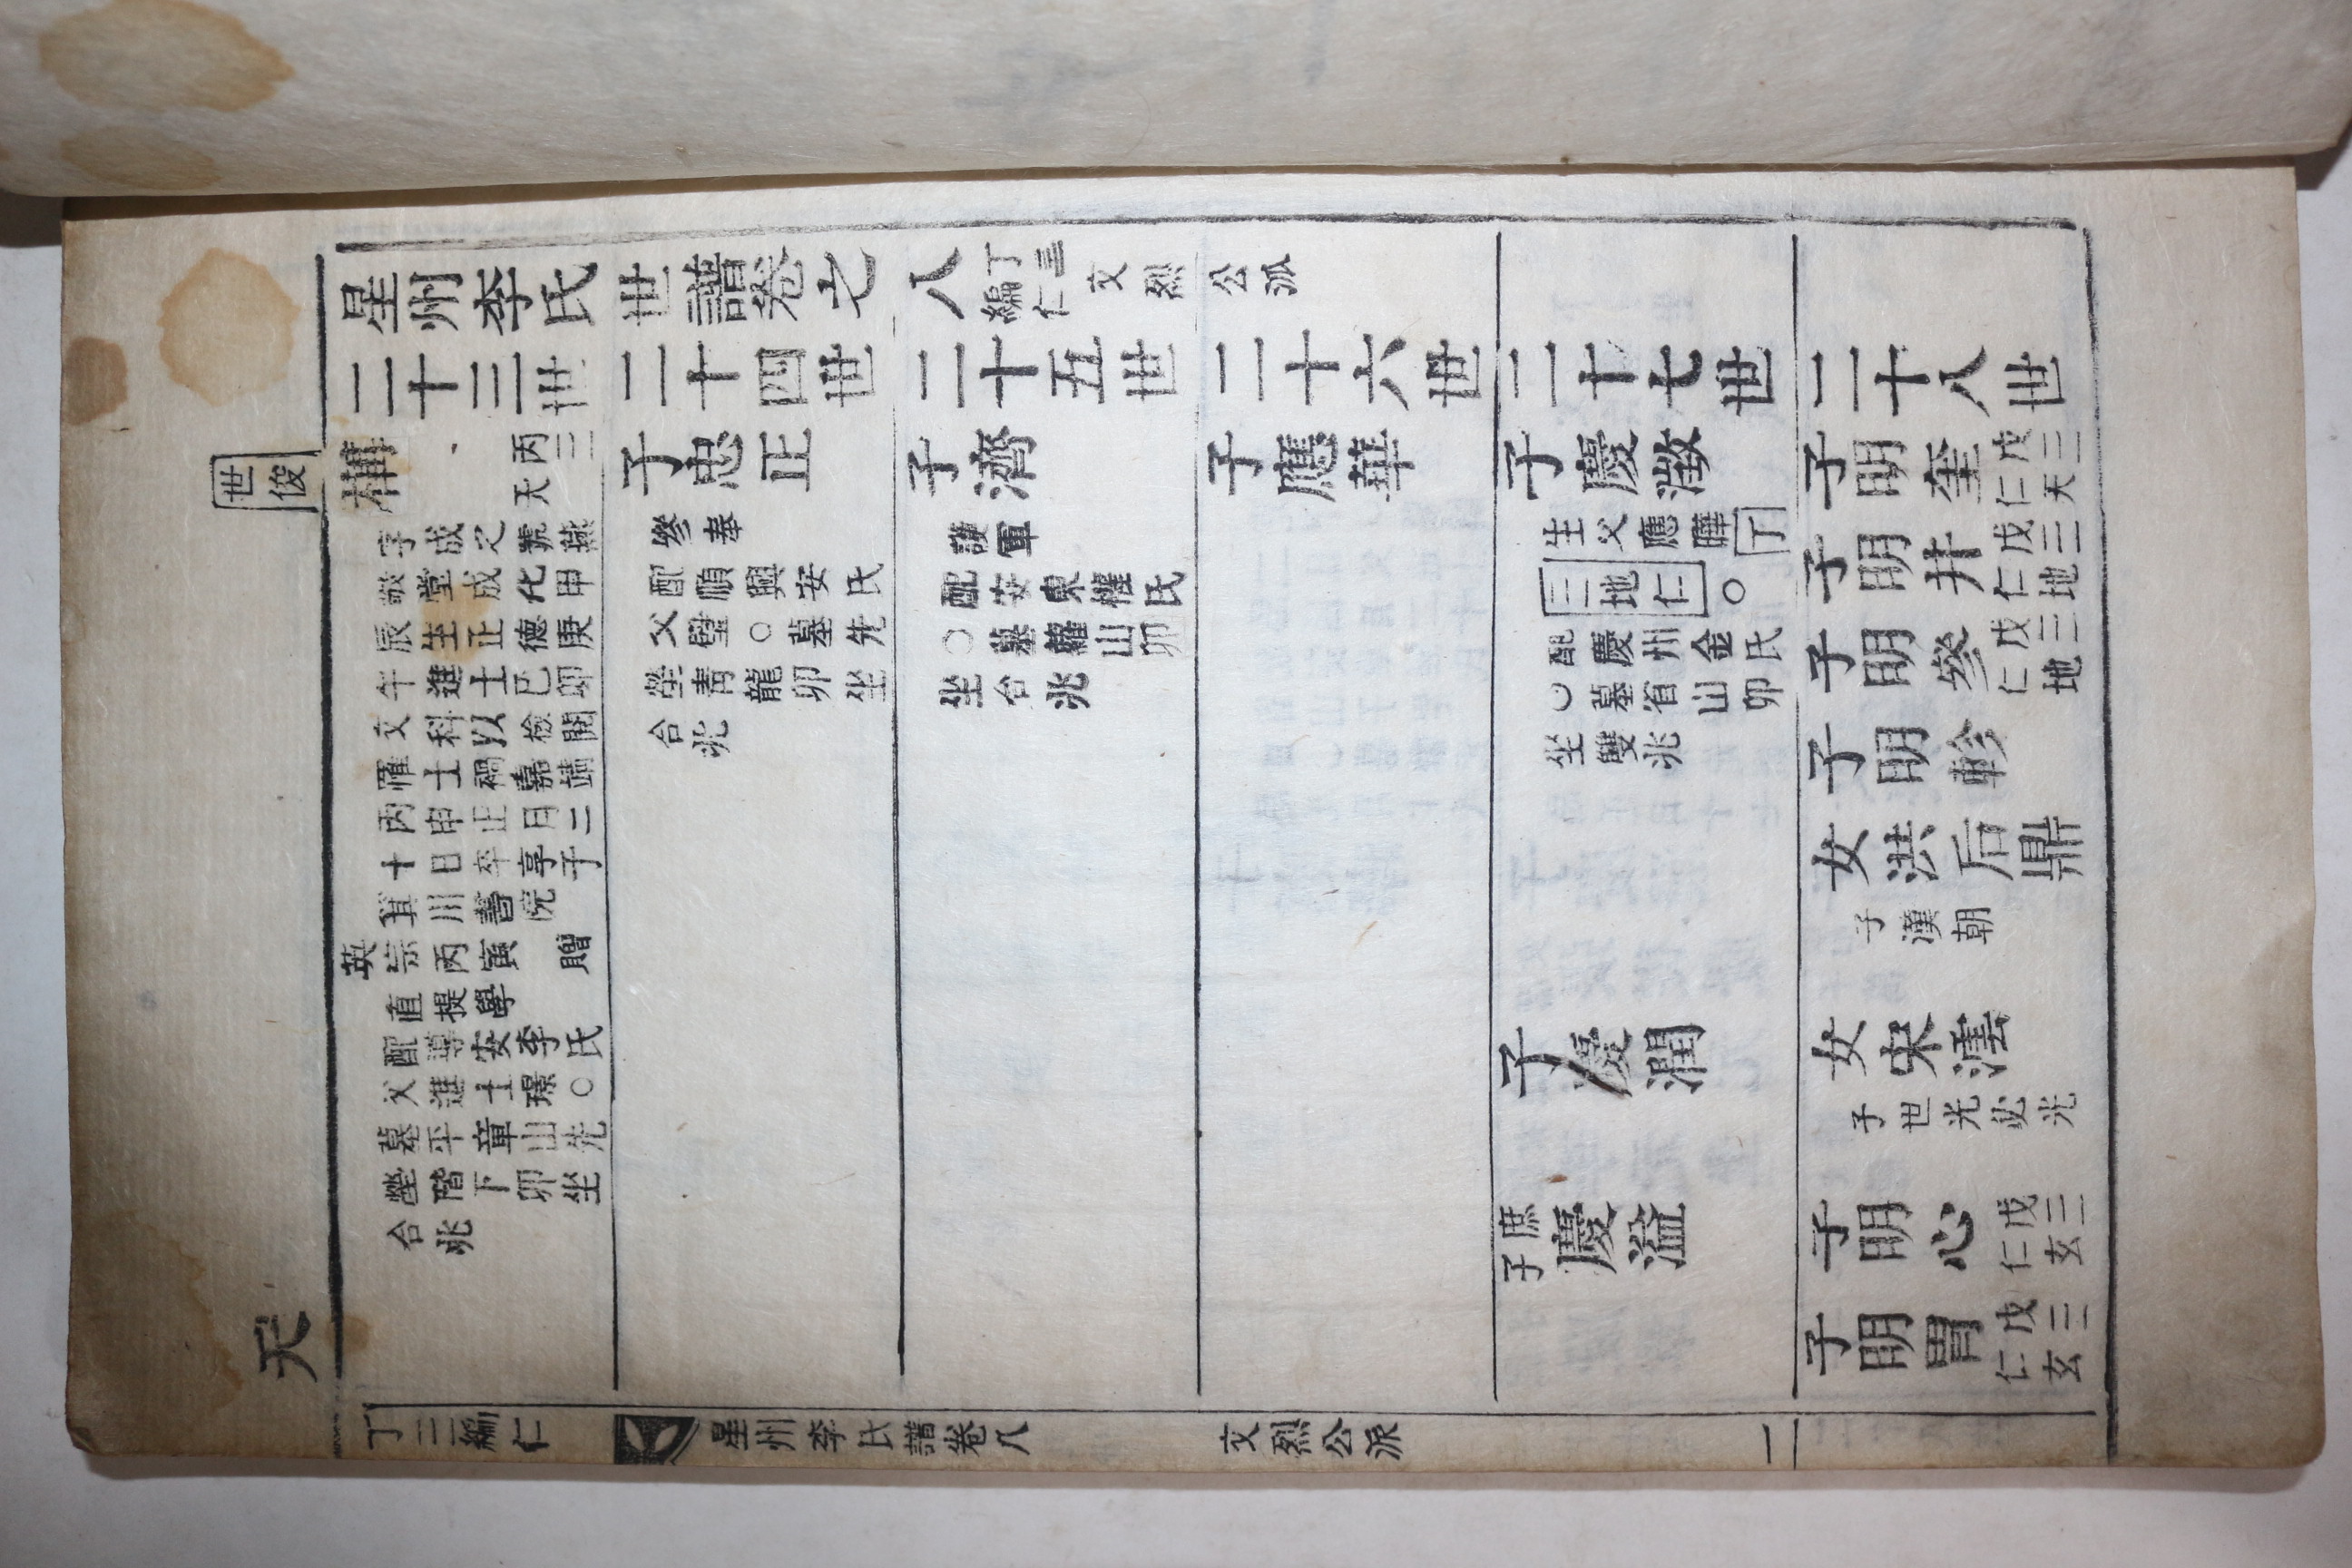 星州李氏世譜卷之八 丁三編仁 文烈公派
二十三世
構 丙三天
字成之號燕
敬堂成化甲
辰生正德庚
午進士己卯
文科以檢閱
罹士禍嘉靖
丙申正月二
十日卒享于
箕川書院
英宗丙寅 贈
直提學
配安李氏
父進士璟○
墓平章山先
塋階下卯坐
合兆
二十四世
子忠正
參奉
配順興安氏
父璧○墓先
塋靑龍卯坐
合兆
二十五世
子濟
護軍
配安東權氏
○墓蘿山卯
坐合兆
二十六世
子應華
二十七世
子慶澂
生父應曄丁
三地仁○
配慶州金氏
○墓省山卯
坐雙兆
子慶潤
庶子慶溢
二十八世
子明奎 戊三仁天
子明井 戊三仁地
子明參 戊三仁地
子明軫
女洪后鼎
子漢朝
女宋澐
子世光必光
子明心 戊三仁玄
子明胃 戊三仁玄
世俊
天
丁三編仁 星州李氏譜卷八 文烈公派 一